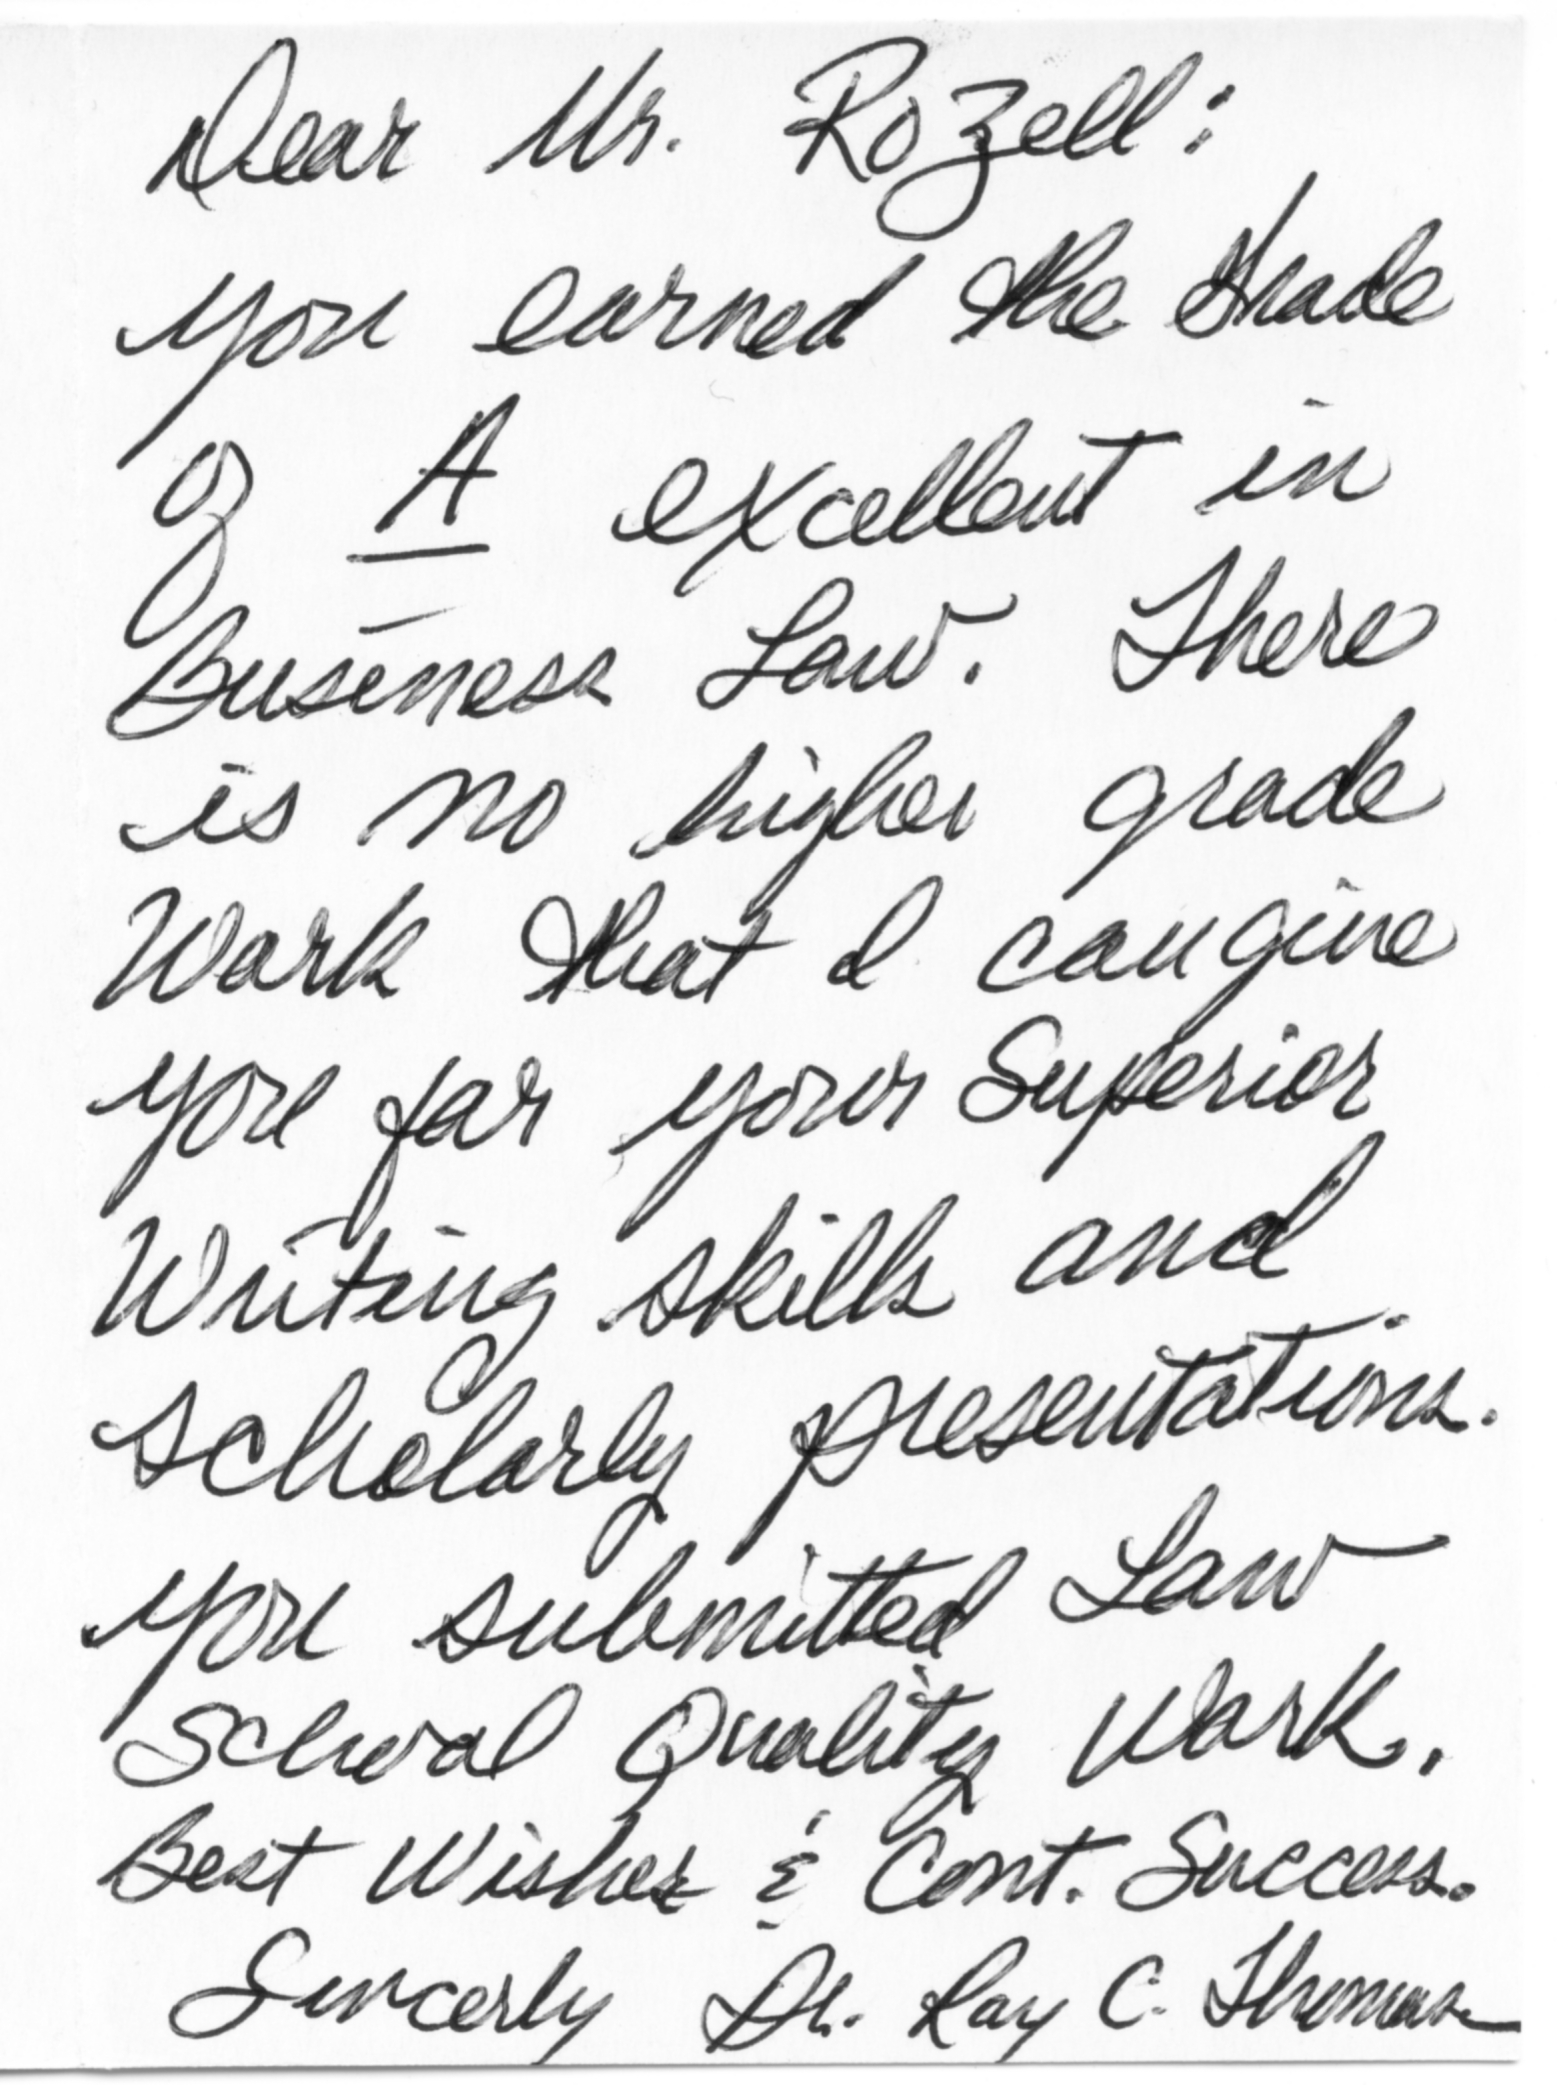 Dear Mr. Rozell:
you earned the Grade
of A excellent in
Business Law. There
is no higher grade
Work that I can give
you for your Superior
Writing skills and
scholarly presentations.
you submitted Law
School Quality Work.
Best Wishes & Cont. Success.
Sincerly Dr. Ray C. Thomas